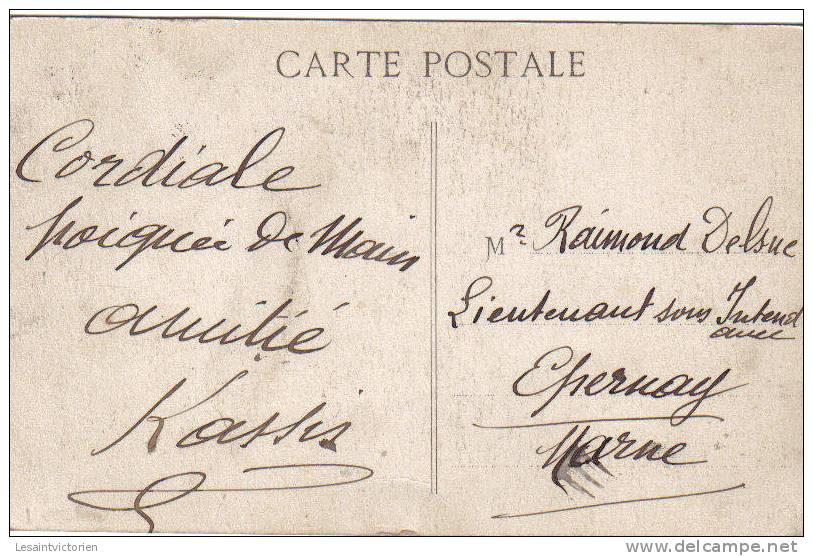 CARTE POSTALE
Cordiale
poignée de Main
amitié
Kassis
Mr Raimond Delsuc
Lieutenant sous Intend
ance
Epernay
Marne
Lesaintvictorien
delcampe.net